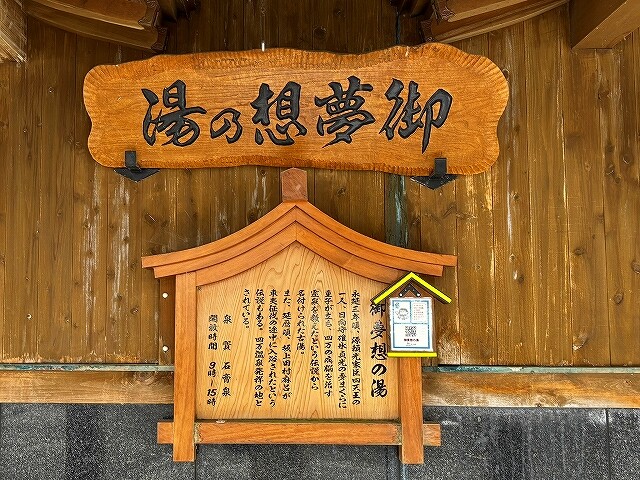 御夢想乃湯
御夢想の湯
永延三年頃、源頼光家臣四天王の
一人、日向守碓氷貞光の夢まくらに
童子が立ち、四万の病悩を治す
霊泉を教えたという伝説から
名付けられた古湯。
また、延暦頃、坂上田村麻呂が
東夷征伐の途中に入浴されたという
伝説もある。四万温泉発祥の地と
されている。
泉質 石膏泉
開放時間 9時~15時